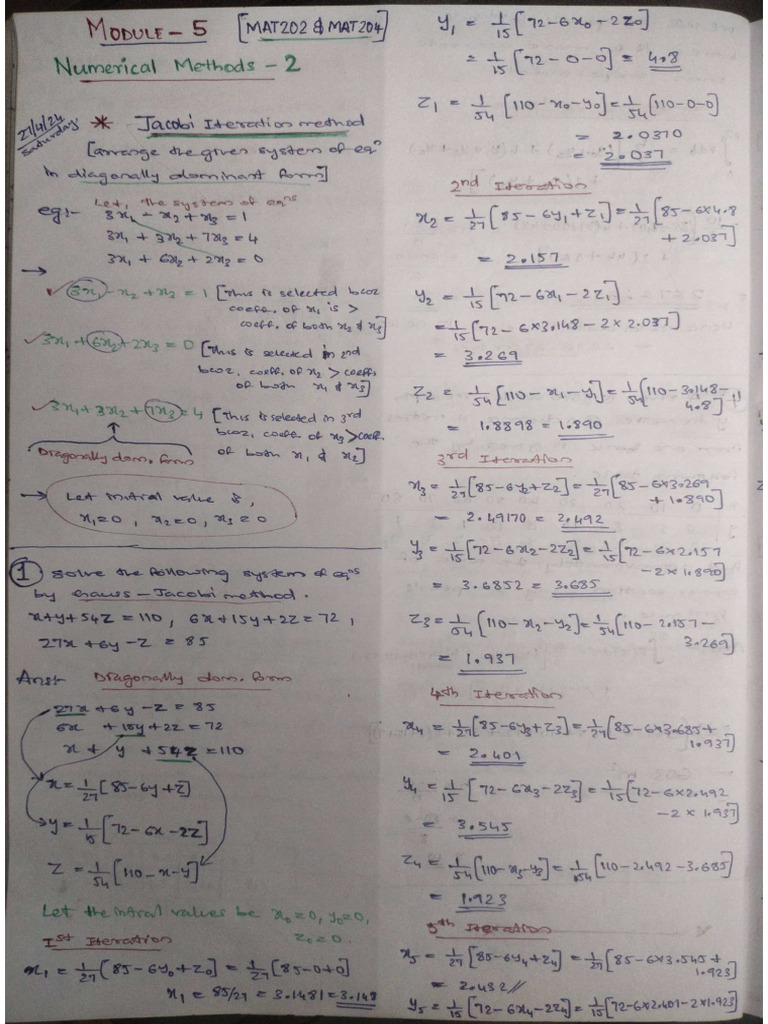 MODULE - 5 [MAT202 & MAT204]
Numerical Methods - 2
27/4/24
Saturday
* Jacobi Iteration method
[arrange the given system of eqⁿ
in diagonally dominant form]
eg:- Let, the system of eqⁿs
3x₁ - x₂ + x₃ = 1
3x₁ + 3x₂ + 7x₃ = 4
3x₁ + 6x₂ + 2x₃ = 0
→
✓ 3x₁ - x₂ + x₂ = 1 [This is selected bcoz
coeff. of x₁ is >
coeff. of both x₂ & x₃]
✓ 3x₁ + 6x₂ + 2x₃ = 0 [This is selected in 2nd
bcoz, coeff. of x₂ > coeff.
of both x₁ & x₃]
✓ 3x₁ + 3x₂ + 7x₃ = 4 [This is selected in 3rd
bcoz, coeff. of x₃ > coeff.
of both x₁ & x₂]
Diagonally dom. form
→ Let initial value is,
x₁ = 0, x₂ = 0, x₃ = 0
① Solve the following system of eqⁿs
by Gauss - Jacobi method.
x+y+54z = 110, 6x+15y+2z = 72,
27x + 6y - z = 85
Ans:- Diagonally dom. form
27x + 6y - z = 85
6x + 15y + 2z = 72
x + y + 54z = 110
x = 1/27 [85 - 6y + z]
y = 1/15 [72 - 6x - 2z]
z = 1/54 [110 - x - y]
Let the initial values be x₀ = 0, y₀ = 0,
z₀ = 0.
1st Iteration
x₁ = 1/27 [85 - 6y₀ + z₀] = 1/27 [85 - 0 + 0]
x₁ = 85/27 = 3.1481 = 3.148
y₁ = 1/15 [72 - 6x₀ - 2z₀]
= 1/15 [72 - 0 - 0] = 4.8
z₁ = 1/54 [110 - x₀ - y₀] = 1/54 [110 - 0 - 0]
= 2.0370
= 2.037
2nd Iteration
x₂ = 1/27 [85 - 6y₁ + z₁] = 1/27 [85 - 6×4.8
+ 2.037]
= 2.157
y₂ = 1/15 [72 - 6x₁ - 2z₁]
= 1/15 [72 - 6×3.148 - 2×2.037]
= 3.269
z₂ = 1/54 [110 - x₁ - y₁] = 1/54 [110 - 3.148 -
4.8]
= 1.8898 = 1.890
3rd Iteration
x₃ = 1/27 [85 - 6y₂ + z₂] = 1/27 [85 - 6×3.269
+ 1.890]
= 2.49170 = 2.492
y₃ = 1/15 [72 - 6x₂ - 2z₂] = 1/15 [72 - 6×2.157
- 2×1.890]
= 3.6852 = 3.685
z₃ = 1/54 [110 - x₂ - y₂] = 1/54 [110 - 2.157 -
3.269]
= 1.937
4th Iteration
x₄ = 1/27 [85 - 6y₃ + z₃] = 1/27 [85 - 6×3.685 +
1.937]
= 2.401
y₄ = 1/15 [72 - 6x₃ - 2z₃] = 1/15 [72 - 6×2.492
- 2×1.937]
= 3.545
z₄ = 1/54 [110 - x₃ - y₃] = 1/54 [110 - 2.492 - 3.685]
= 1.923
5th Iteration
x₅ = 1/27 [85 - 6y₄ + z₄] = 1/27 [85 - 6×3.545 +
1.923]
= 2.432 //
y₅ = 1/15 [72 - 6x₄ - 2z₄] = 1/15 [72 - 6×2.401 - 2×1.923]